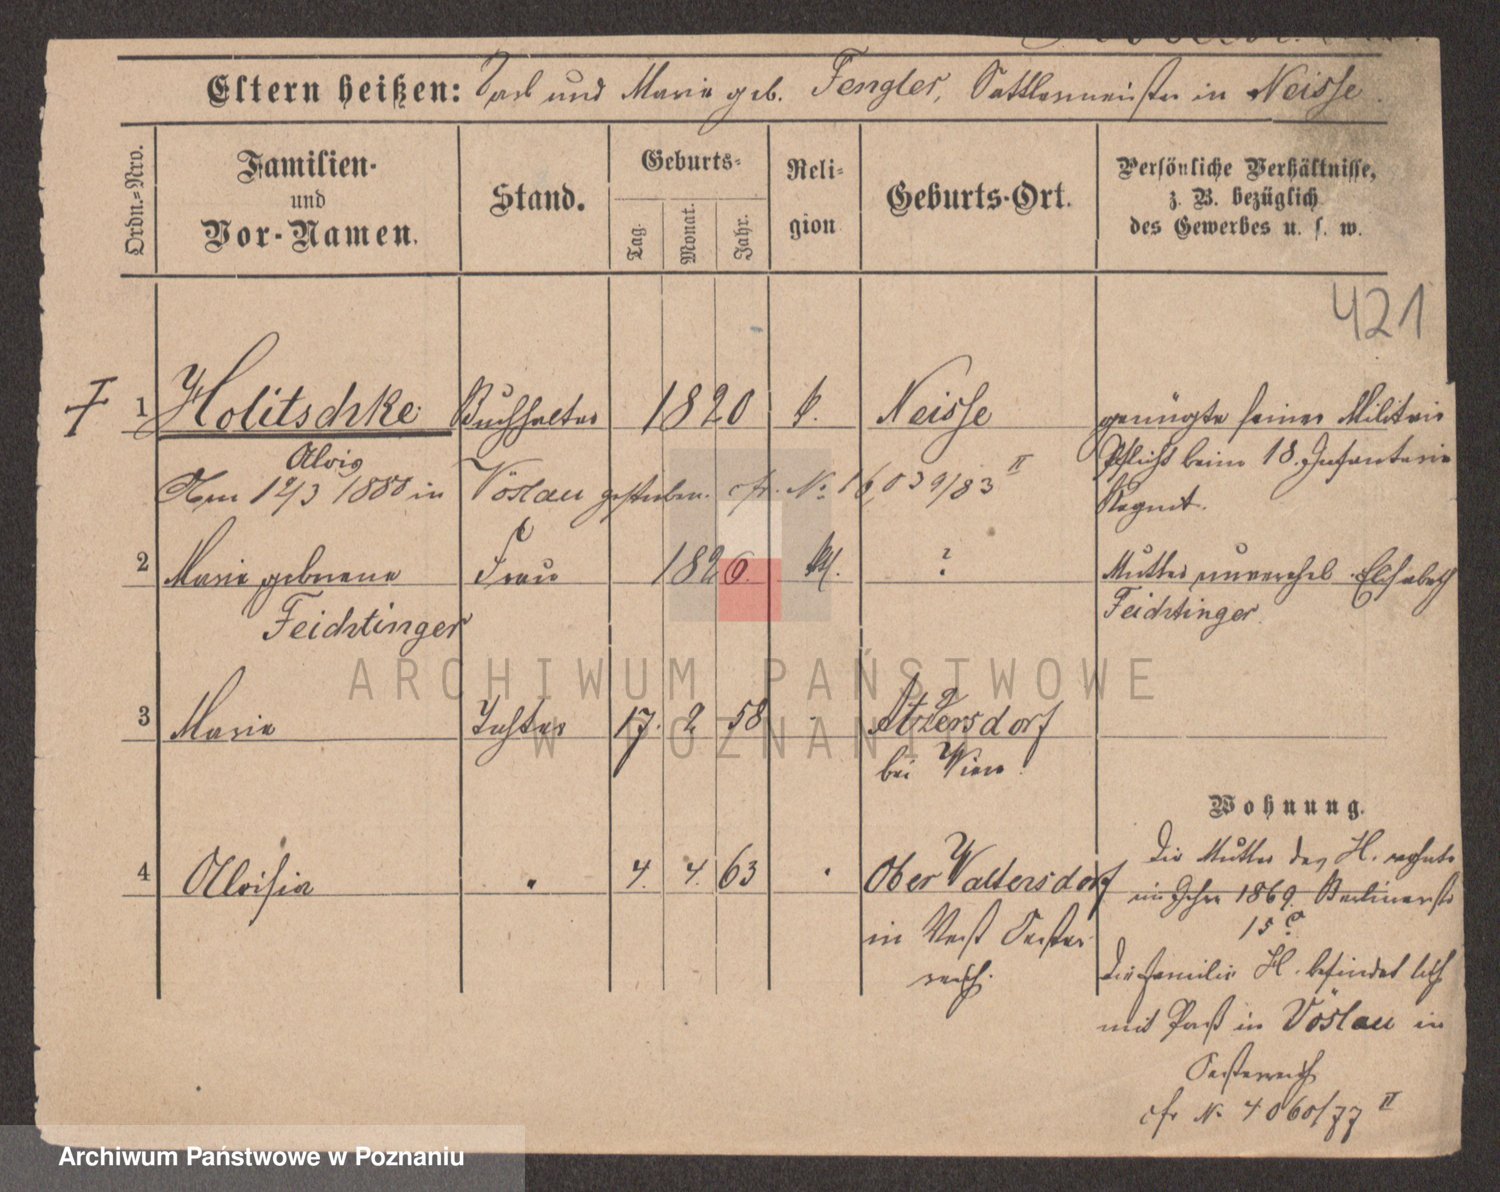 Eltern heißen: Carl und Marie geb. Fengler, Sattlermeister in Neisse.
Ordn.=Nro.
Familien-
und
Vor-Namen.
Stand.
Geburts=
Tag.
Monat.
Jahr.
Reli=
gion
Geburts-Ort.
Persönliche Verhältnisse,
z. B. bezüglich
des Gewerbes u. s. w.
421
1 Holitschke Buchhalter 1820 k. Neisse genügte seiner Militair
Alois
Pflicht beim 18. Infanterie
Am 12/3 1888 in Vöslau gestorben. cfr. No 16039/83 II
Regmt.
2 Marie geborene Frau 1826. k. ? Mutter unverehel. Elisabeth
Feichtinger
Feichtinger.
3 Marie Tochter 17. 2 58 Atzgersdorf
bei Wien.
Wohnung.
Die Mutter des H. wohnte
4 Aloisia " 4. 4. 63 " Ober Waltersdorf
im Jahre 1869. Berlinerstr
15
in Oester
reich.
Die Familie H. befindet sich
mit Paß in Vöslau in
Oesterreich
cfr No 4060/77 II
ARCHIWUM PAŃSTWOWE
W POZNANIU
Archiwum Państwowe w Poznaniu